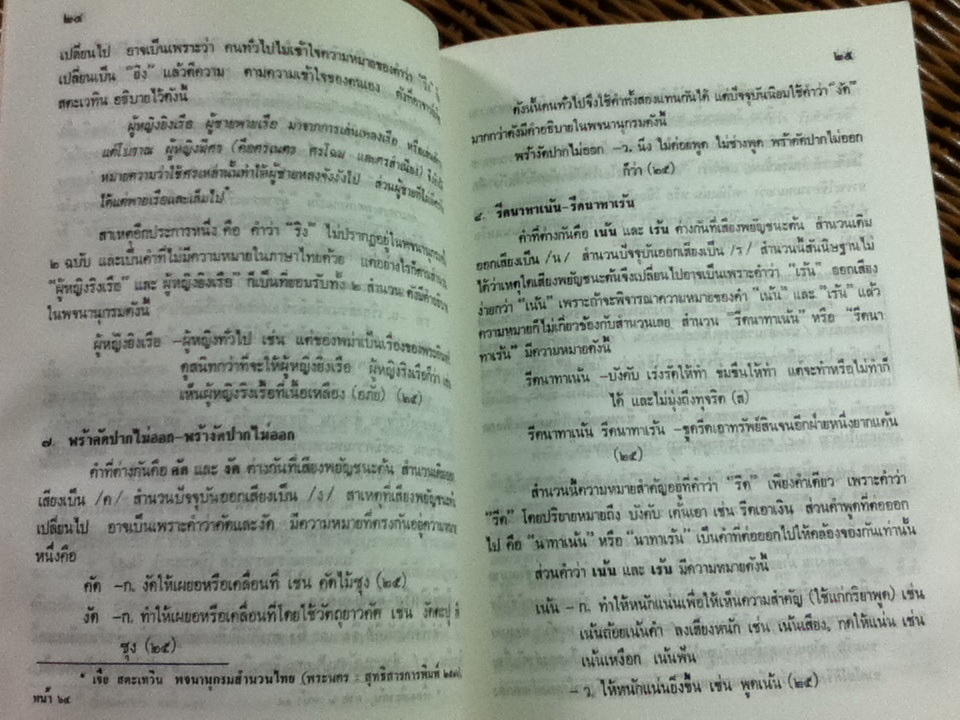 ๒๔
เปลี่ยนไป อาจเป็นเพราะว่า คนทั่วไปไม่เข้าใจความหมายของคำว่า "ริง"
เปลี่ยนเป็น "ยิง" แล้วตีความ ตามความเข้าใจของตนเอง ดังที่
สตะเวทิน อธิบายไว้ดังนี้
ผู้หญิงยิงเรือ ผู้ชายพายเรือ มาจากการเล่นเพลงเรือ
แต่โบราณ ผู้หญิงมีศร (คือศรเนตร ศรโฉม และศรสำเนียง)
หมายความว่าใช้ศรเหล่านั้นทำให้ผู้ชายหลงจังงังไป ส่วนผู้ชาย
ได้แต่พายเรือและเต็มไป*
สาเหตุอีกประการหนึ่ง คือ คำว่า "ริง" ไม่ปรากฏอยู่ในพจนานุกรม
๒ ฉบับ และเป็นคำที่ไม่มีความหมายในภาษาไทยด้วย แต่อย่างไรก็ตาม
"ผู้หญิงริงเรือ" และ ผู้หญิงยิงเรือ" ก็เป็นที่ยอมรับทั้ง ๒ สำนวน ดังมีคำอธิบาย
ในพจนานุกรมดังนี้
ผู้หญิงยิงเรือ –ผู้หญิงทั่วไป เช่น แต่ของพม่าเป็นเรื่องของพระ
ดูสนิทกว่าที่จะให้ผู้หญิงยิงเรือ ผู้หญิงริงเรือก็ว่า เช่น
เห็นผู้หญิงริงเรือที่เนื้อเหลือง (อภัย) (๒๕)
๗. พร้าคัดปากไม่ออก-พร้างัดปากไม่ออก
คำที่ต่างกันคือ คัด และ งัด ต่างกันที่เสียงพยัญชนะต้น สำนวนเดิมออก
เสียงเป็น /ค/ สำนวนปัจจุบันออกเสียงเป็น /ง/ สาเหตุที่เสียงพยัญชนะต้น
เปลี่ยนไป อาจเป็นเพราะคำว่าคัดและงัด มีความหมายที่ตรงกันอยู่ความหมาย
หนึ่งคือ
คัด –ก. งัดให้เผยอหรือเคลื่อนที่ เช่น คัดไม้ซุง (๒๕)
งัด –ก. ทำให้เผยอหรือเคลื่อนที่โดยใช้วัตถุยาวคัด เช่น งัดตะปู
ซุง (๒๕)
* เจือ สตะเวทิน พจนานุกรมสำนวนไทย (พระนคร : สุทธิสารการพิมพ์
หน้า ๖๔
๒๕
ดังนั้นคนทั่วไปจึงใช้คำทั้งสองแทนกันได้ แต่ปัจจุบันนิยมใช้คำว่า "งัด"
มากกว่าดังมีคำอธิบายในพจนานุกรมดังนี้
พร้างัดปากไม่ออก –ว. นิ่ง ไม่ค่อยพูด ไม่ช่างพูด พร้าคัดปากไม่ออก
ก็ว่า (๒๕)
๘. รีดนาทาเน้น-รีดนาทาเร้น
คำที่ต่างกันคือ เน้น และ เร้น ต่างกันที่เสียงพยัญชนะต้น สำนวนเดิม
ออกเสียงเป็น /น/ สำนวนปัจจุบันออกเสียงเป็น /ร/ สำนวนนี้สันนิษฐานไม่
ได้ว่าเหตุใดเสียงพยัญชนะต้นจึงเปลี่ยนไปอาจเป็นเพราะคำว่า "เร้น" ออกเสียง
ง่ายกว่า "เน้น" เพราะถ้าจะพิจารณาความหมายของคำ "เน้น" และ "เร้น" แล้ว
ความหมายก็ไม่เกี่ยวข้องกับสำนวนเลย สำนวน "รีดนาทาเน้น" หรือ "รีดนา
ทาเร้น" มีความหมายดังนี้
รีดนาทาเน้น –บังคับ เร่งรัดให้ทำ ข่มขืนให้ทำ แต่จะทำหรือไม่ทำก็
ได้ และไม่มุ่งถึงทุจริต (ส)
รีดนาทาเน้น รีดนาทาเร้น –ขูดรีดเอาทรัพย์สินจนอีกฝ่ายหนึ่งยากแค้น
(๒๕)
สำนวนนี้ความหมายสำคัญอยู่ที่คำว่า "รีด" เพียงคำเดียว เพราะคำว่า
"รีด" โดยปริยายหมายถึง บังคับ เค้นเอา เช่น รีดเอาเงิน ส่วนคำพูดที่ต่อออก
ไป คือ "นาทาเน้น" หรือ "นาทาเร้น" เป็นคำที่ต่อออกไปให้คล้องของกันเท่านั้น
ส่วนคำว่า เน้น และ เร้น มีความหมายดังนี้
เน้น – ก. ทำให้หนักแน่นเพื่อให้เห็นความสำคัญ (ใช้แก่กริยาพูด) เช่น
เน้นถ้อยเน้นคำ ลงเสียงหนัก เช่น เน้นเสียง, กดให้แน่น เช่น
เน้นเหงือก เน้นฟัน
– ว. ให้หนักแน่นยิ่งขึ้น เช่น พูดเน้น (๒๕)